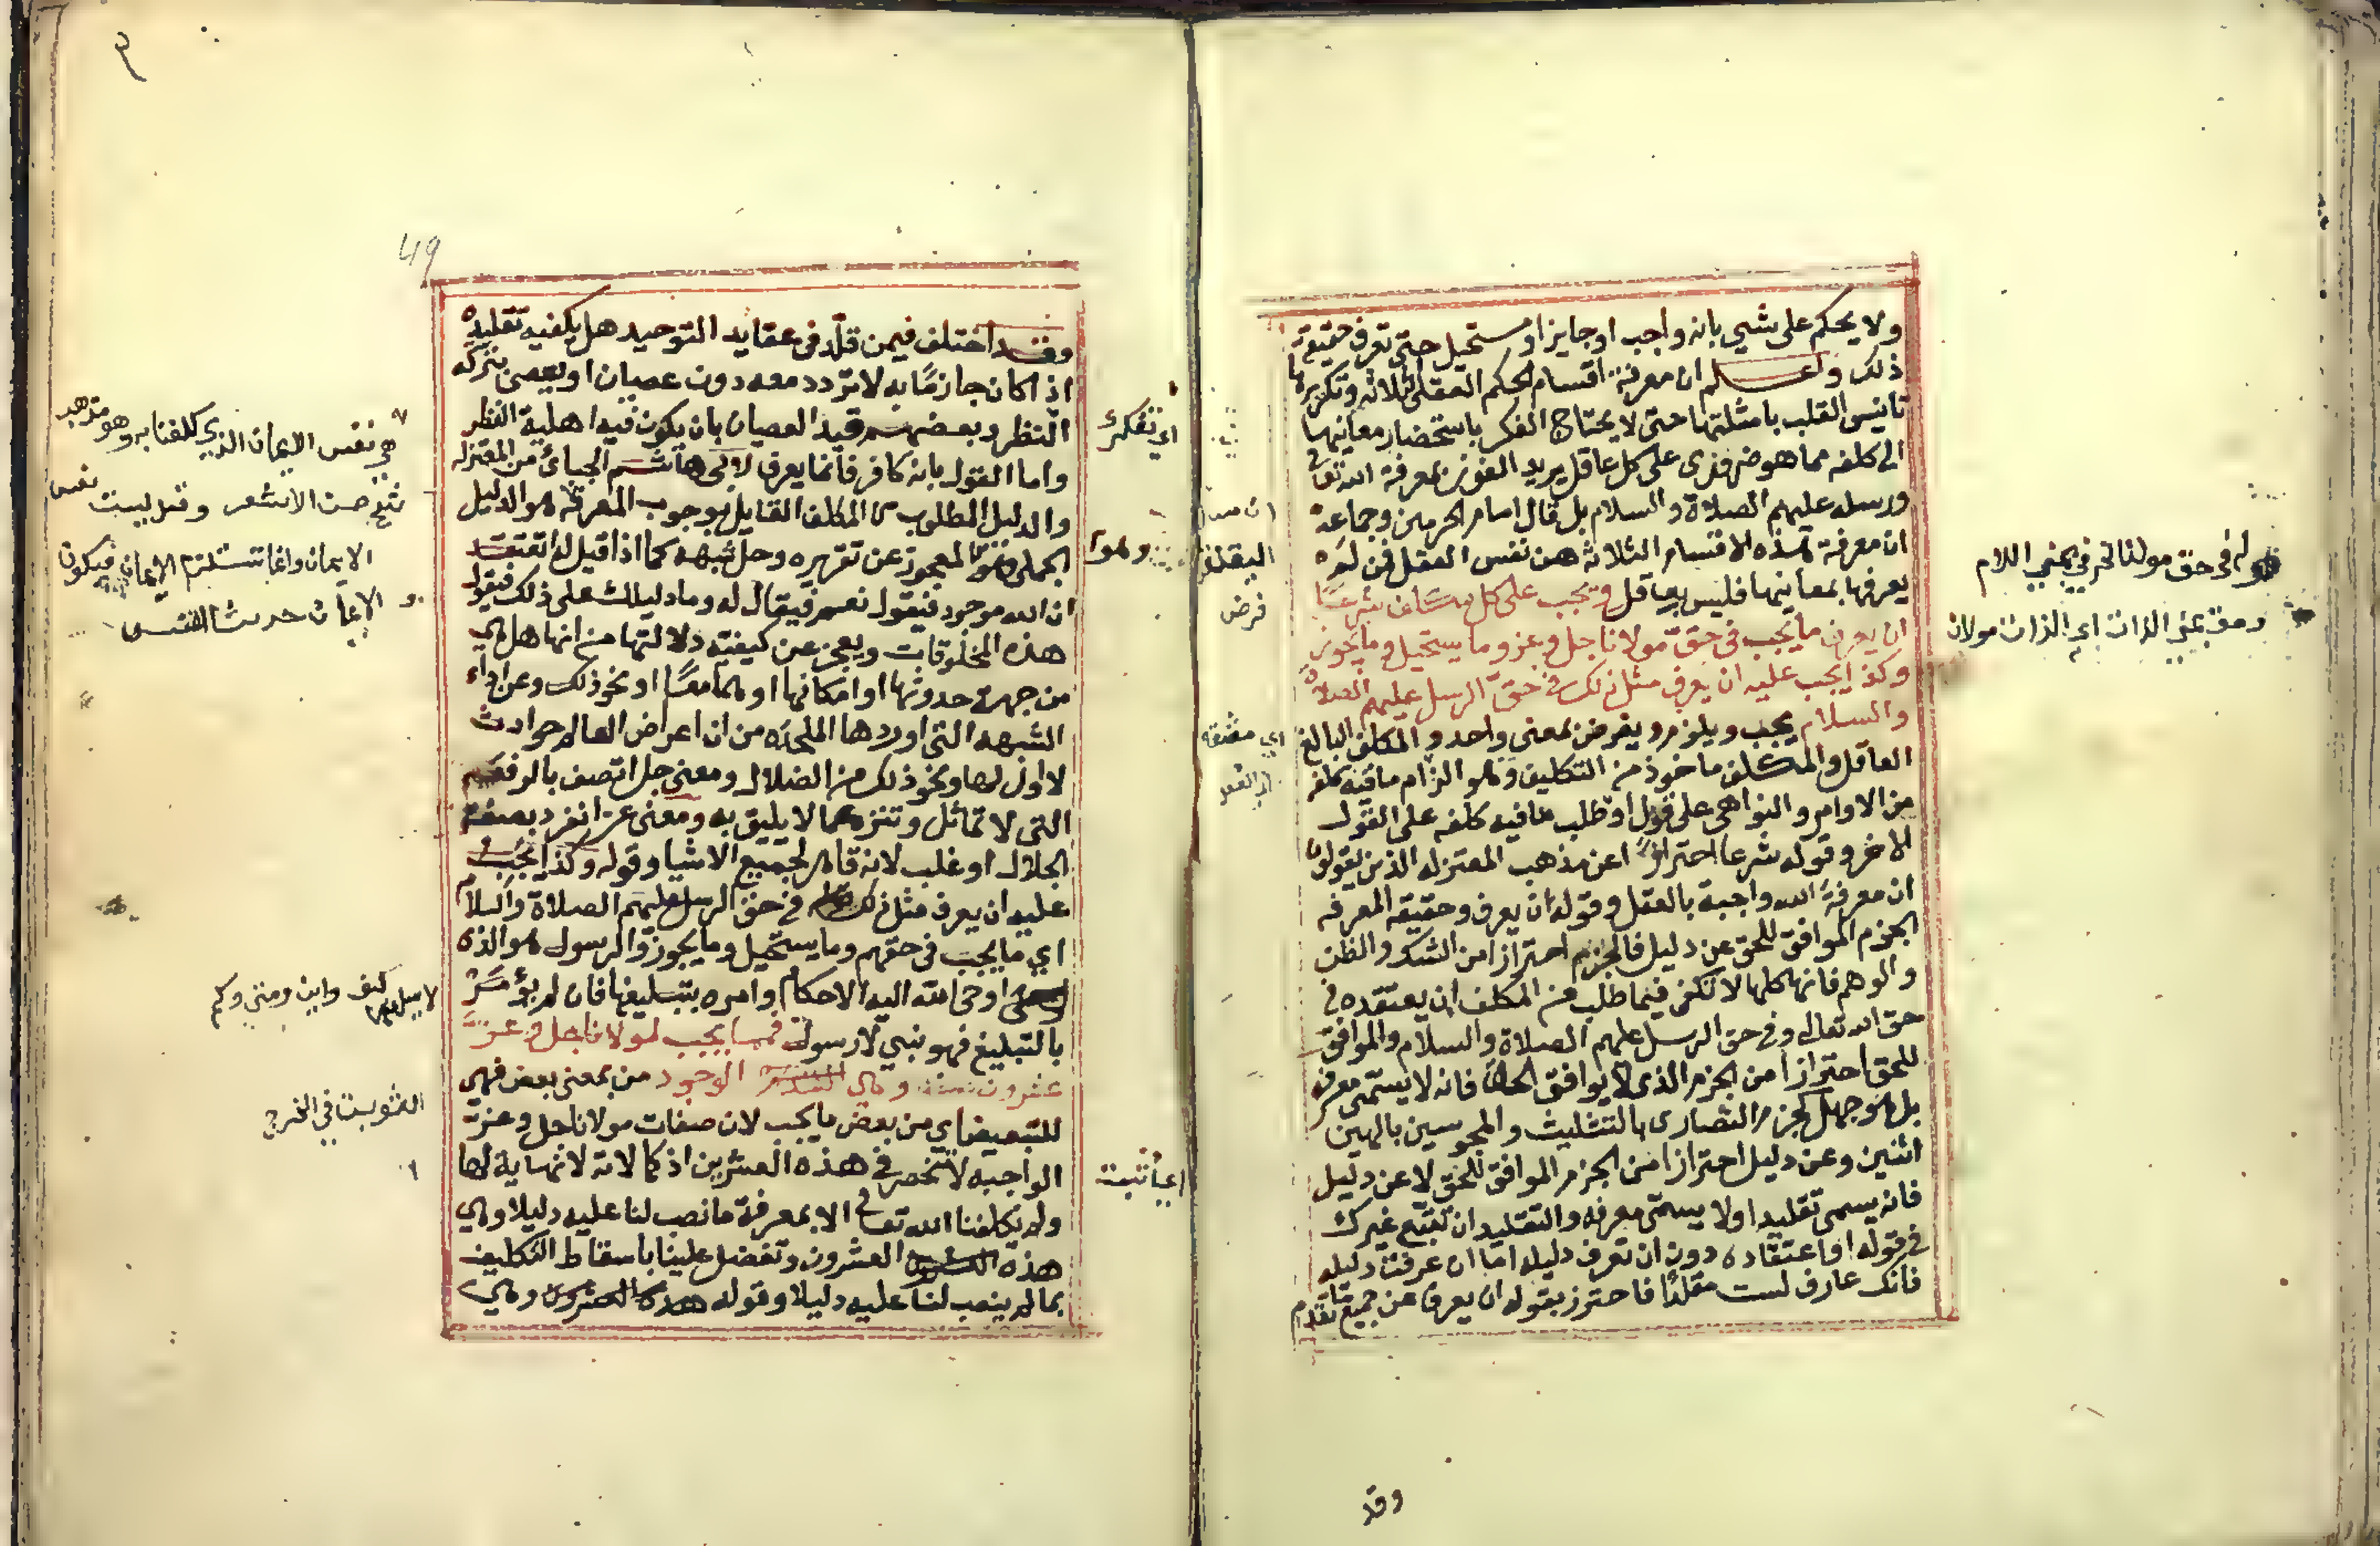 ولا يحكم على شيي بانه واجب او جايز او مستحيل حتى تعرف حقيقة
ذلك واعلم ان معرفة اقسام الحكم العقلي الثلاثه وتكريرها
تانيس القلب بامثلتها حتى لا يحتاج الفكر باستحضار معانيها
الى كلفه مما هو ضروري على كل عاقل يريد الفوز بمعرفة الله تعالى
ورسله عليهم الصلاة والسلام بل قال امام الحرمين وجماعة
ان معرفة هذه الاقسام الثلاثة هي نفس العقل فمن لم
يعرفها بمعانيها فليس بعاقل ويجب على كل مكلف شرعا
ان يعرف ما يجب في حق مولانا جل وعز وما يستحيل وما يجوز
وكذا يجب عليه ان يعرف مثل ذلك في حق الرسل عليهم الصلاة
والسلام يجب ويلزم ويفرض بمعنى واحد والمكلف البالغ
العاقل والمكلف ماخوذ من التكليف وهو الزام ما فيه كلفه
من الاوامر والنواهي على قول او طلب ما فيه كلفه على القول
الاخر وقوله شرعا احترازا عن مذهب المعتزله الذين يقولون
ان معرفة الله واجبة بالعقل وقوله ان يعرف وحقيقة المعرفه
الجزم الموافق للحق عن دليل فالجزم احترازا من الشك والظن
والوهم فانها كلها لا تكفي فيما طلب من المكلف ان يعتقده في
حق الله تعالى وفي حق الرسل عليهم الصلاة والسلام والموافق
للحق احترازا من الجزم الذي لا يوافق الحق فانه لا يسمى معرفه
بل هو جهل كجزم النصارى بالتثليث والمجوسين بالهين
اثنين وعن دليل احترازا من الجزم الموافق للحق لا عن دليل
فانه يسمى تقليدا ولا يسمى معرفه والتقليد ان تتبع غيرك
في قوله او اعتقاده دون ان تعرف دليله اما ان عرفت دليله
فانك عارف لست مقلدا فاحترز بقوله ان يعرف عن جميع ما تقدم
وقد
في حق مولنا الخ في بمعني اللام
وحق بمعني الذات اي الذات مولانا
فرض
49
وقد اختلف فيمن قلد في عقايد التوحيد هل يكفيه تقليده
اذا كان جازما به لا تردد معه دون عصيان او يعصى بتركه
النظر وبعضهم قيد العصيان بان يكون فيه اهلية النظر
واما القول بانه كافر فانما يعرف لابي هاشم الجبائ من المعتزله
والدليل المطلوب من المكلف القايل بوجوب المعرفة هو الدليل
الجملي وهو المعجوز عن تقريره وحل شبهه كما اذا قيل له اتعتقد
ان الله موجود فيقول نعم فيقال له وما دليلك على ذلك فيقول
هذه المخلوقات ويعجز عن كيفية دلالتها من انها هل هي
من جهة حدوثها او امكانها او هما معا او نحو ذلك وعن اداء
الشبهه التي اوردها الملحده من ان اعراض العالم حوادث
لا اول لها ونحو ذلك من الضلال ومعنى جل اتصف بالرفعه
التي لا تماثل وتنزه عما لا يليق به ومعنى عز انفرد بصفة
الجلال او غلب لانه قاهر لجميع الاشيا وقوله وكذا يجب
عليه ان يعرف مثل ذلك في حق الرسل عليهم الصلاة والسلام
اي ما يجب في حقهم وما يستحيل وما يجوز والرسول هو الذي
اوحى الله اليه الاحكام وامره بتبليغها فان لم يؤمر
بالتبليغ فهو نبي لا رسول فمما يجب لمولانا جل وعز
عشرون صفة وهي الوجود من بمعنى بعض فهي
للتبعيض اي من بعض ما يجب لان صفات مولانا جل وعز
الواجبه لا تنحصر في هذه العشرين اذ كمالاته لا نهاية لها
ولم يكلفنا الله تعالى الا بمعرفة ما نصب لنا عليه دليلا وهي
هذه العشرون وتفضل علينا باسقاط التكليف
بما لم ينصب لنا عليه دليلا وقوله وهي
اي تفكر
وهو
هي نفس الايمان الذي كلفنا به وهو مذهب
الاشعر وقيل ليست نفس
الايمان وانما تستلزم الايمان فيكون
الايمان حديث النفس
كيف واين ومتي وكم
الثوبت في الخرج